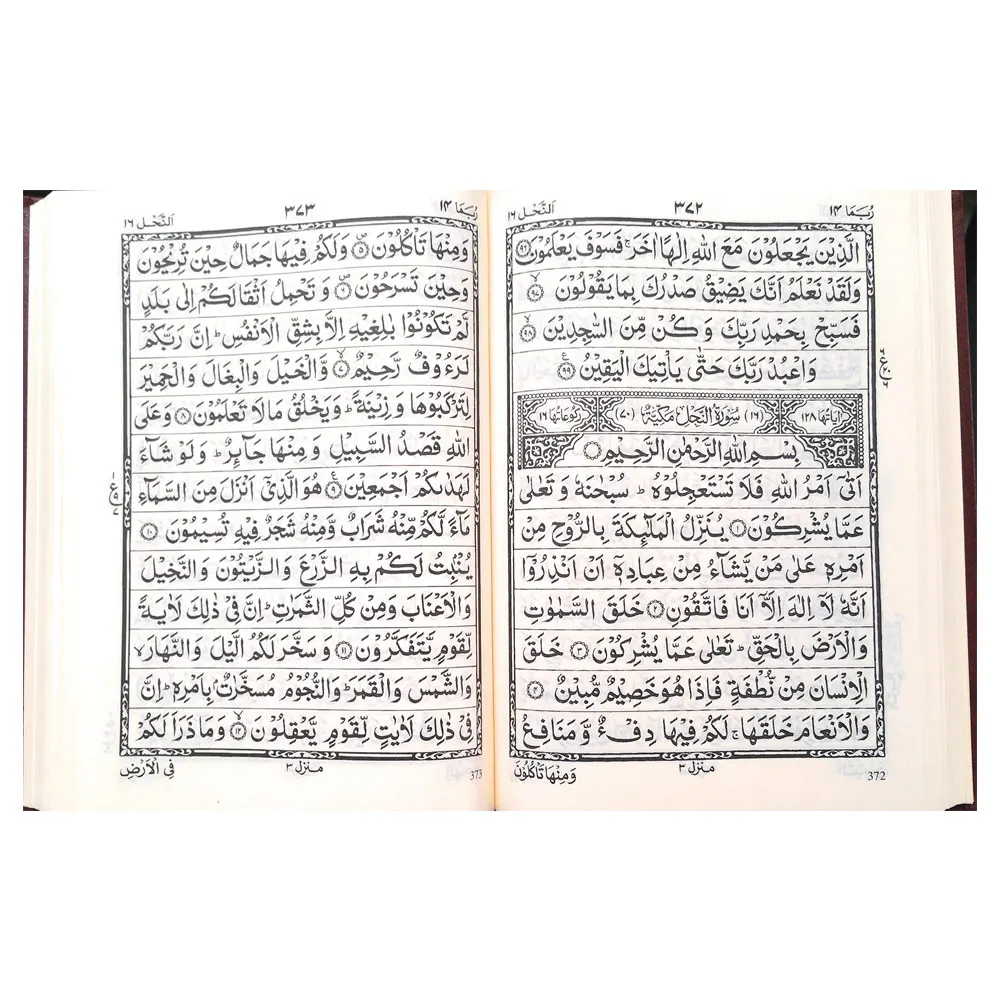 رُبَمَا ١۴
٣٧٢
اَلنَّحْل ١٦
الَّذِيْنَ يَجْعَلُوْنَ مَعَ اللّٰهِ اِلٰهًا اٰخَرَ ۚ فَسَوْفَ يَعْلَمُوْنَ ۹۶
وَلَقَدْ نَعْلَمُ اَنَّكَ يَضِيْقُ صَدْرُكَ بِمَا يَقُوْلُوْنَ ۹۷
فَسَبِّحْ بِحَمْدِ رَبِّكَ وَ كُنْ مِّنَ السّٰجِدِيْنَ ۹۸
وَاعْبُدْ رَبَّكَ حَتّٰى يَاْتِيَكَ الْيَقِيْنُ ۹۹
اٰيَاتُهَا ١٢٨ (١٦) سُوْرَةُ النَّحْلِ مَكِّيَّةٌ (٧٠) رُكُوْعَاتُهَا ١٦
بِسْمِ اللّٰهِ الرَّحْمٰنِ الرَّحِيْمِ
اَتٰٓى اَمْرُ اللّٰهِ فَلَا تَسْتَعْجِلُوْهُ ؕ سُبْحٰنَهٗ وَ تَعٰلٰى
عَمَّا يُشْرِكُوْنَ ۱ يُنَزِّلُ الْمَلٰٓئِكَةَ بِالرُّوْحِ مِنْ
اَمْرِهٖ عَلٰى مَنْ يَّشَآءُ مِنْ عِبَادِهٖٓ اَنْ اَنْذِرُوْٓا
اَنَّهٗ لَآ اِلٰهَ اِلَّآ اَنَا فَاتَّقُوْنِ ۲ خَلَقَ السَّمٰوٰتِ
وَالْاَرْضَ بِالْحَقِّ ؕ تَعٰلٰى عَمَّا يُشْرِكُوْنَ ۳ خَلَقَ
الْاِنْسَانَ مِنْ نُّطْفَةٍ فَاِذَا هُوَ خَصِيْمٌ مُّبِيْنٌ ۴
وَالْاَنْعَامَ خَلَقَهَا ۚ لَكُمْ فِيْهَا دِفْءٌ وَّ مَنَافِعُ
372
منزل ٣
وَمِنْهَا تَاْكُلُوْنَ
رُبَمَا ١۴
٣٧٣
اَلنَّحْل ١٦
وَمِنْهَا تَاْكُلُوْنَ ۵ وَلَكُمْ فِيْهَا جَمَالٌ حِيْنَ تُرِيْحُوْنَ
وَحِيْنَ تَسْرَحُوْنَ ۶ وَ تَحْمِلُ اَثْقَالَكُمْ اِلٰى بَلَدٍ
لَّمْ تَكُوْنُوْا بٰلِغِيْهِ اِلَّا بِشِقِّ الْاَنْفُسِ ؕ اِنَّ رَبَّكُمْ
لَرَءُوْفٌ رَّحِيْمٌ ۷ وَّالْخَيْلَ وَالْبِغَالَ وَالْحَمِيْرَ
لِتَرْكَبُوْهَا وَ زِيْنَةً ؕ وَيَخْلُقُ مَا لَا تَعْلَمُوْنَ ۸ وَعَلَى
اللّٰهِ قَصْدُ السَّبِيْلِ وَ مِنْهَا جَآئِرٌ ؕ وَلَوْ شَآءَ
لَهَدٰىكُمْ اَجْمَعِيْنَ ۹ هُوَ الَّذِيْٓ اَنْزَلَ مِنَ السَّمَآءِ
مَآءً لَّكُمْ مِّنْهُ شَرَابٌ وَّمِنْهُ شَجَرٌ فِيْهِ تُسِيْمُوْنَ ۱۰
يُنْۢبِتُ لَكُمْ بِهِ الزَّرْعَ وَالزَّيْتُوْنَ وَالنَّخِيْلَ
وَالْاَعْنَابَ وَمِنْ كُلِّ الثَّمَرٰتِ ؕ اِنَّ فِيْ ذٰلِكَ لَاٰيَةً
لِّقَوْمٍ يَّتَفَكَّرُوْنَ ۱۱ وَ سَخَّرَ لَكُمُ الَّيْلَ وَالنَّهَارَ ۙ
وَالشَّمْسَ وَالْقَمَرَ ؕ وَالنُّجُوْمُ مُسَخَّرٰتٌۢ بِاَمْرِهٖ ؕ اِنَّ
فِيْ ذٰلِكَ لَاٰيٰتٍ لِّقَوْمٍ يَّعْقِلُوْنَ ۱۲ وَمَا ذَرَاَ لَكُمْ
373
منزل ٣
فِي الْاَرْضِ